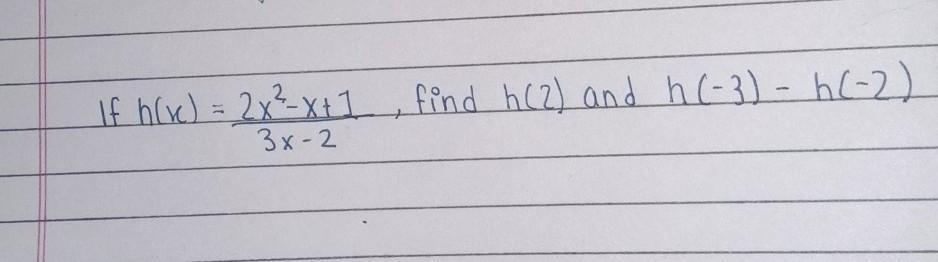 If h(x) = \frac{2x^2-x+1}{3x-2}, find h(2) and h(-3) - h(-2)